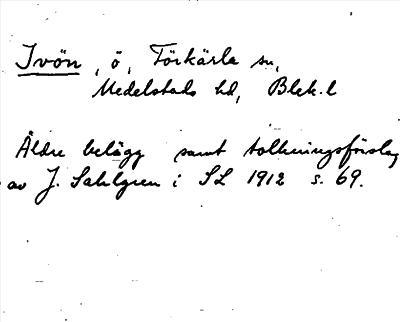 Ivön, ö, Förkärla sn,
Medelstads hd, Blek. l
Äldre belägg samt tolkningsförslag
av J. Sahlgren i SL 1912 s. 69.